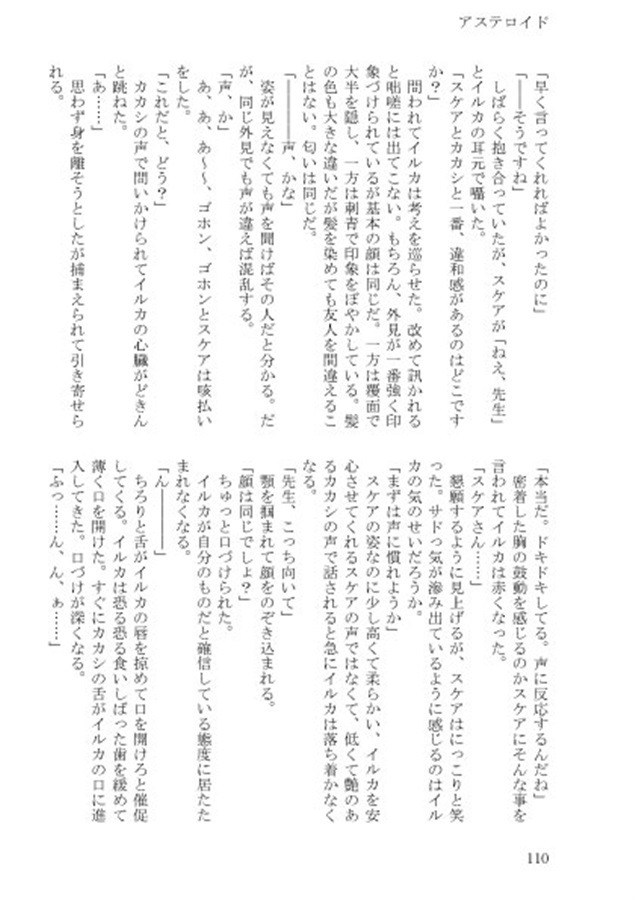 アステロイド
「早く言ってくれればよかったのに」
「――そうですね」
しばらく抱き合っていたが、スケアが「ねえ、先生」
とイルカの耳元で囁いた。
「スケアとカカシと一番、違和感があるのはどこです
か？」
問われてイルカは考えを巡らせた。改めて訊かれる
と咄嗟には出てこない。もちろん、外見が一番強く印
象づけられているが基本の顔は同じだ。一方は覆面で
大半を隠し、一方は刺青で印象をぼやかしている。髪
の色も大きな違いだが髪を染めても友人を間違えるこ
とはない。匂いは同じだ。
「――――声、かな」
姿が見えなくても声を聞けばその人だと分かる。だ
が、同じ外見でも声が違えば混乱する。
「声、か」
あ、あ、あ～～、ゴホン、ゴホンとスケアは咳払い
をした。
「これだと、どう？」
カカシの声で問いかけられてイルカの心臓がどきん
と跳ねた。
「あ……」
思わず身を離そうとしたが捕まえられて引き寄せら
れる。
「本当だ。ドキドキしてる。声に反応するんだね」
密着した胸の鼓動を感じるのかスケアにそんな事を
言われてイルカは赤くなった。
「スケアさん……」
懇願するように見上げるが、スケアはにっこりと笑
った。サドっ気が滲み出ているように感じるのはイル
カの気のせいだろうか。
「まずは声に慣れようか」
スケアの姿なのに少し高くて柔らかい、イルカを安
心させてくれるスケアの声ではなくて、低くて艶のあ
るカカシの声で話されると急にイルカは落ち着かなく
なる。
「先生、こっち向いて」
顎を掴まれて顔をのぞき込まれる。
「顔は同じでしょ？」
ちゅっと口づけられた。
イルカが自分のものだと確信している態度に居たた
まれなくなる。
「ん――――」
ちろりと舌がイルカの唇を掠めて口を開けろと催促
してくる。イルカは恐る恐る食いしばった歯を緩めて
薄く口を開けた。すぐにカカシの舌がイルカの口に進
入してきた。口づけが深くなる。
「ふっ……ん、ん、ぁ……」
110